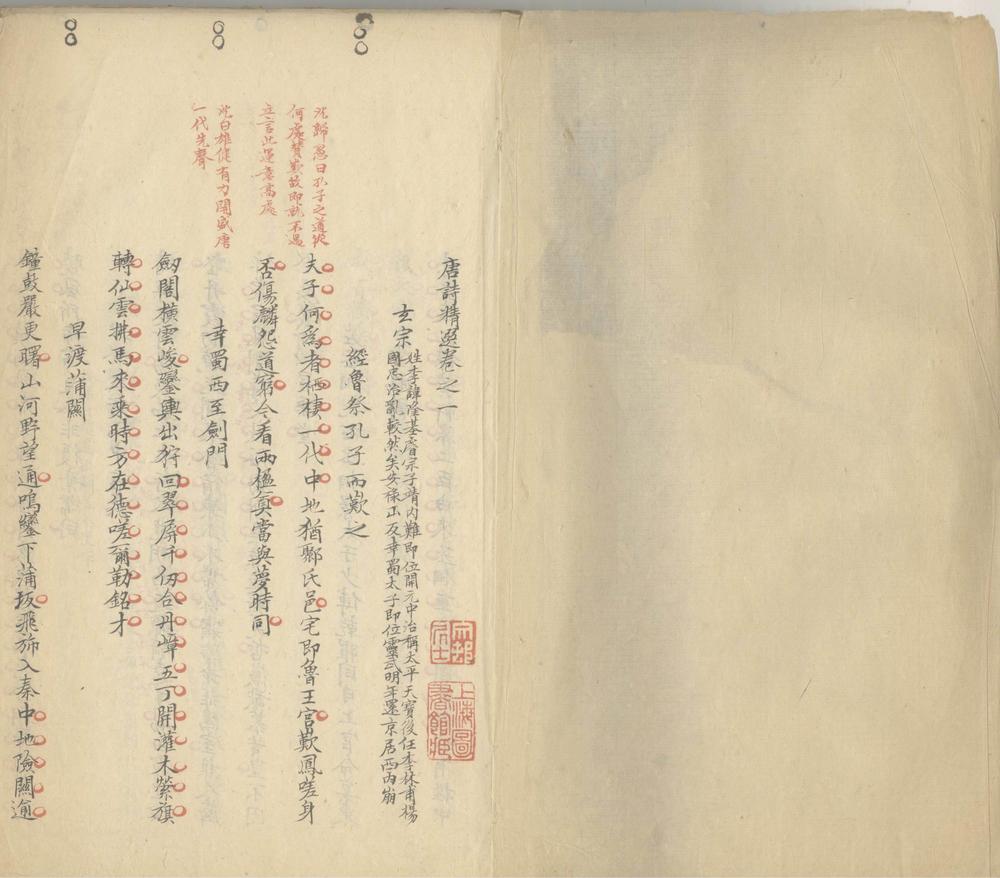 唐詩精選卷之一
玄宗
姓李諱隆基睿宗子靖内難即位開元中治稱太平天寶後任李林甫楊
國忠治亂較然矣安祿山反幸蜀太子即位靈武明年還京居西内崩
經魯祭孔子而歎之
夫子何爲者栖棲一代中地猶鄹氏邑宅即魯王宫歎鳳嗟身
否傷麟怨道窮今看兩楹奠當與夢時同
幸蜀西至劍門
劒閣横雲峻鑾輿出狩回翠屏千仞合丹嶂五丁開灌木縈旗
轉仙雲拂馬來乘時方在德嗟爾勒銘才
早渡蒲關
鐘鼓嚴更曙山河野望通鳴鑾下蒲坂飛斾入秦中地險關逾
沈歸愚曰孔子之道從
何處贊歎故即就不遇
立言此運意高處
沈曰雄健有力開盛唐
一代先聲
上海圖
書館藏